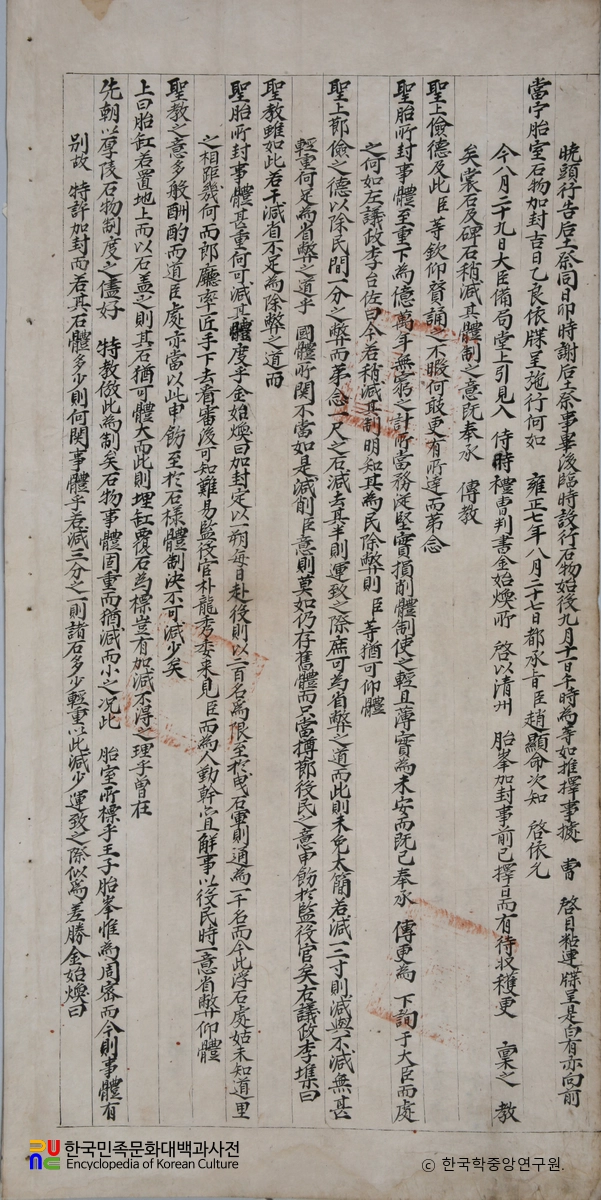 曉頭行告后土祭同日卯時謝后土祭事畢後臨時設行石物始役九月十一日午時爲等如推擇事據 曹 啓目粘連牒呈是白有亦向前
當宁胎室石物加封吉日乙良依牒呈施行何如 雍正七年八月二十七日都承旨臣趙顯命次知 啓依允
今八月二十九日大臣備局堂上引見入 侍時禮曹判書金始煥所 啓以清州 胎峯加封事前已擇日而有待收穫更 稟之 教
矣裳石及碑石稍減其體制之意旣奉承 傳教
聖上儉德及此臣等欽仰贊誦之不暇何敢更有所達而第念
聖胎所封事體至重下爲億萬年無窮之計所當務從堅實損削體制使之輕且薄實爲未安而旣已奉承 傳更爲 下詢于大臣而處
之何如左議政李台佐曰今若稍減其制明知其爲民除弊則 臣等猶可仰體
聖上節儉之德以除民間一分之弊而第念一尺之石減去其半則運致之際庶可爲省弊之道而此則未免太簡若減一二寸則減與不減無甚
輕重何足爲省弊之道乎 國體所關不當如是減削臣意則莫如仍存舊體而只當撙節役民之意申飭於監役官矣右議政李㙫曰
聖教雖如此若干減省不足爲除弊之道而
聖胎所封事體甚重何可減其體度乎金始煥曰加封定以一朔每日赴役則以二百名爲限至於曳石軍則通爲一千名而今此浮石處姑未知道里
之相距幾何而郎廳率匠手下去看審後可知難易監役官朴龍秀委來見臣而爲人勤幹且解事以役民時一意省弊仰體
聖教之意多般酬酌而道臣處亦當以此申飭至於石樣體制決不可減少矣
上曰胎缸若置地上而以石盖之則其石猶可體大而此則埋缸覆石爲標豈有加減不得之理乎曾在
先朝以厚陵石物制度之儘好 特教倣此爲制矣石物事體固重而猶減而小之況此 胎室所標乎王子胎峯惟爲周密而今則事體有
別故 特許加封而若其石體多少則何關事體乎若減三分之一則諸石多少輕重以此減少運致之際似爲差勝金始煥曰
한국민족문화대백과사전
Encyclopedia of Korean Culture
ⓒ 한국학중앙연구원.